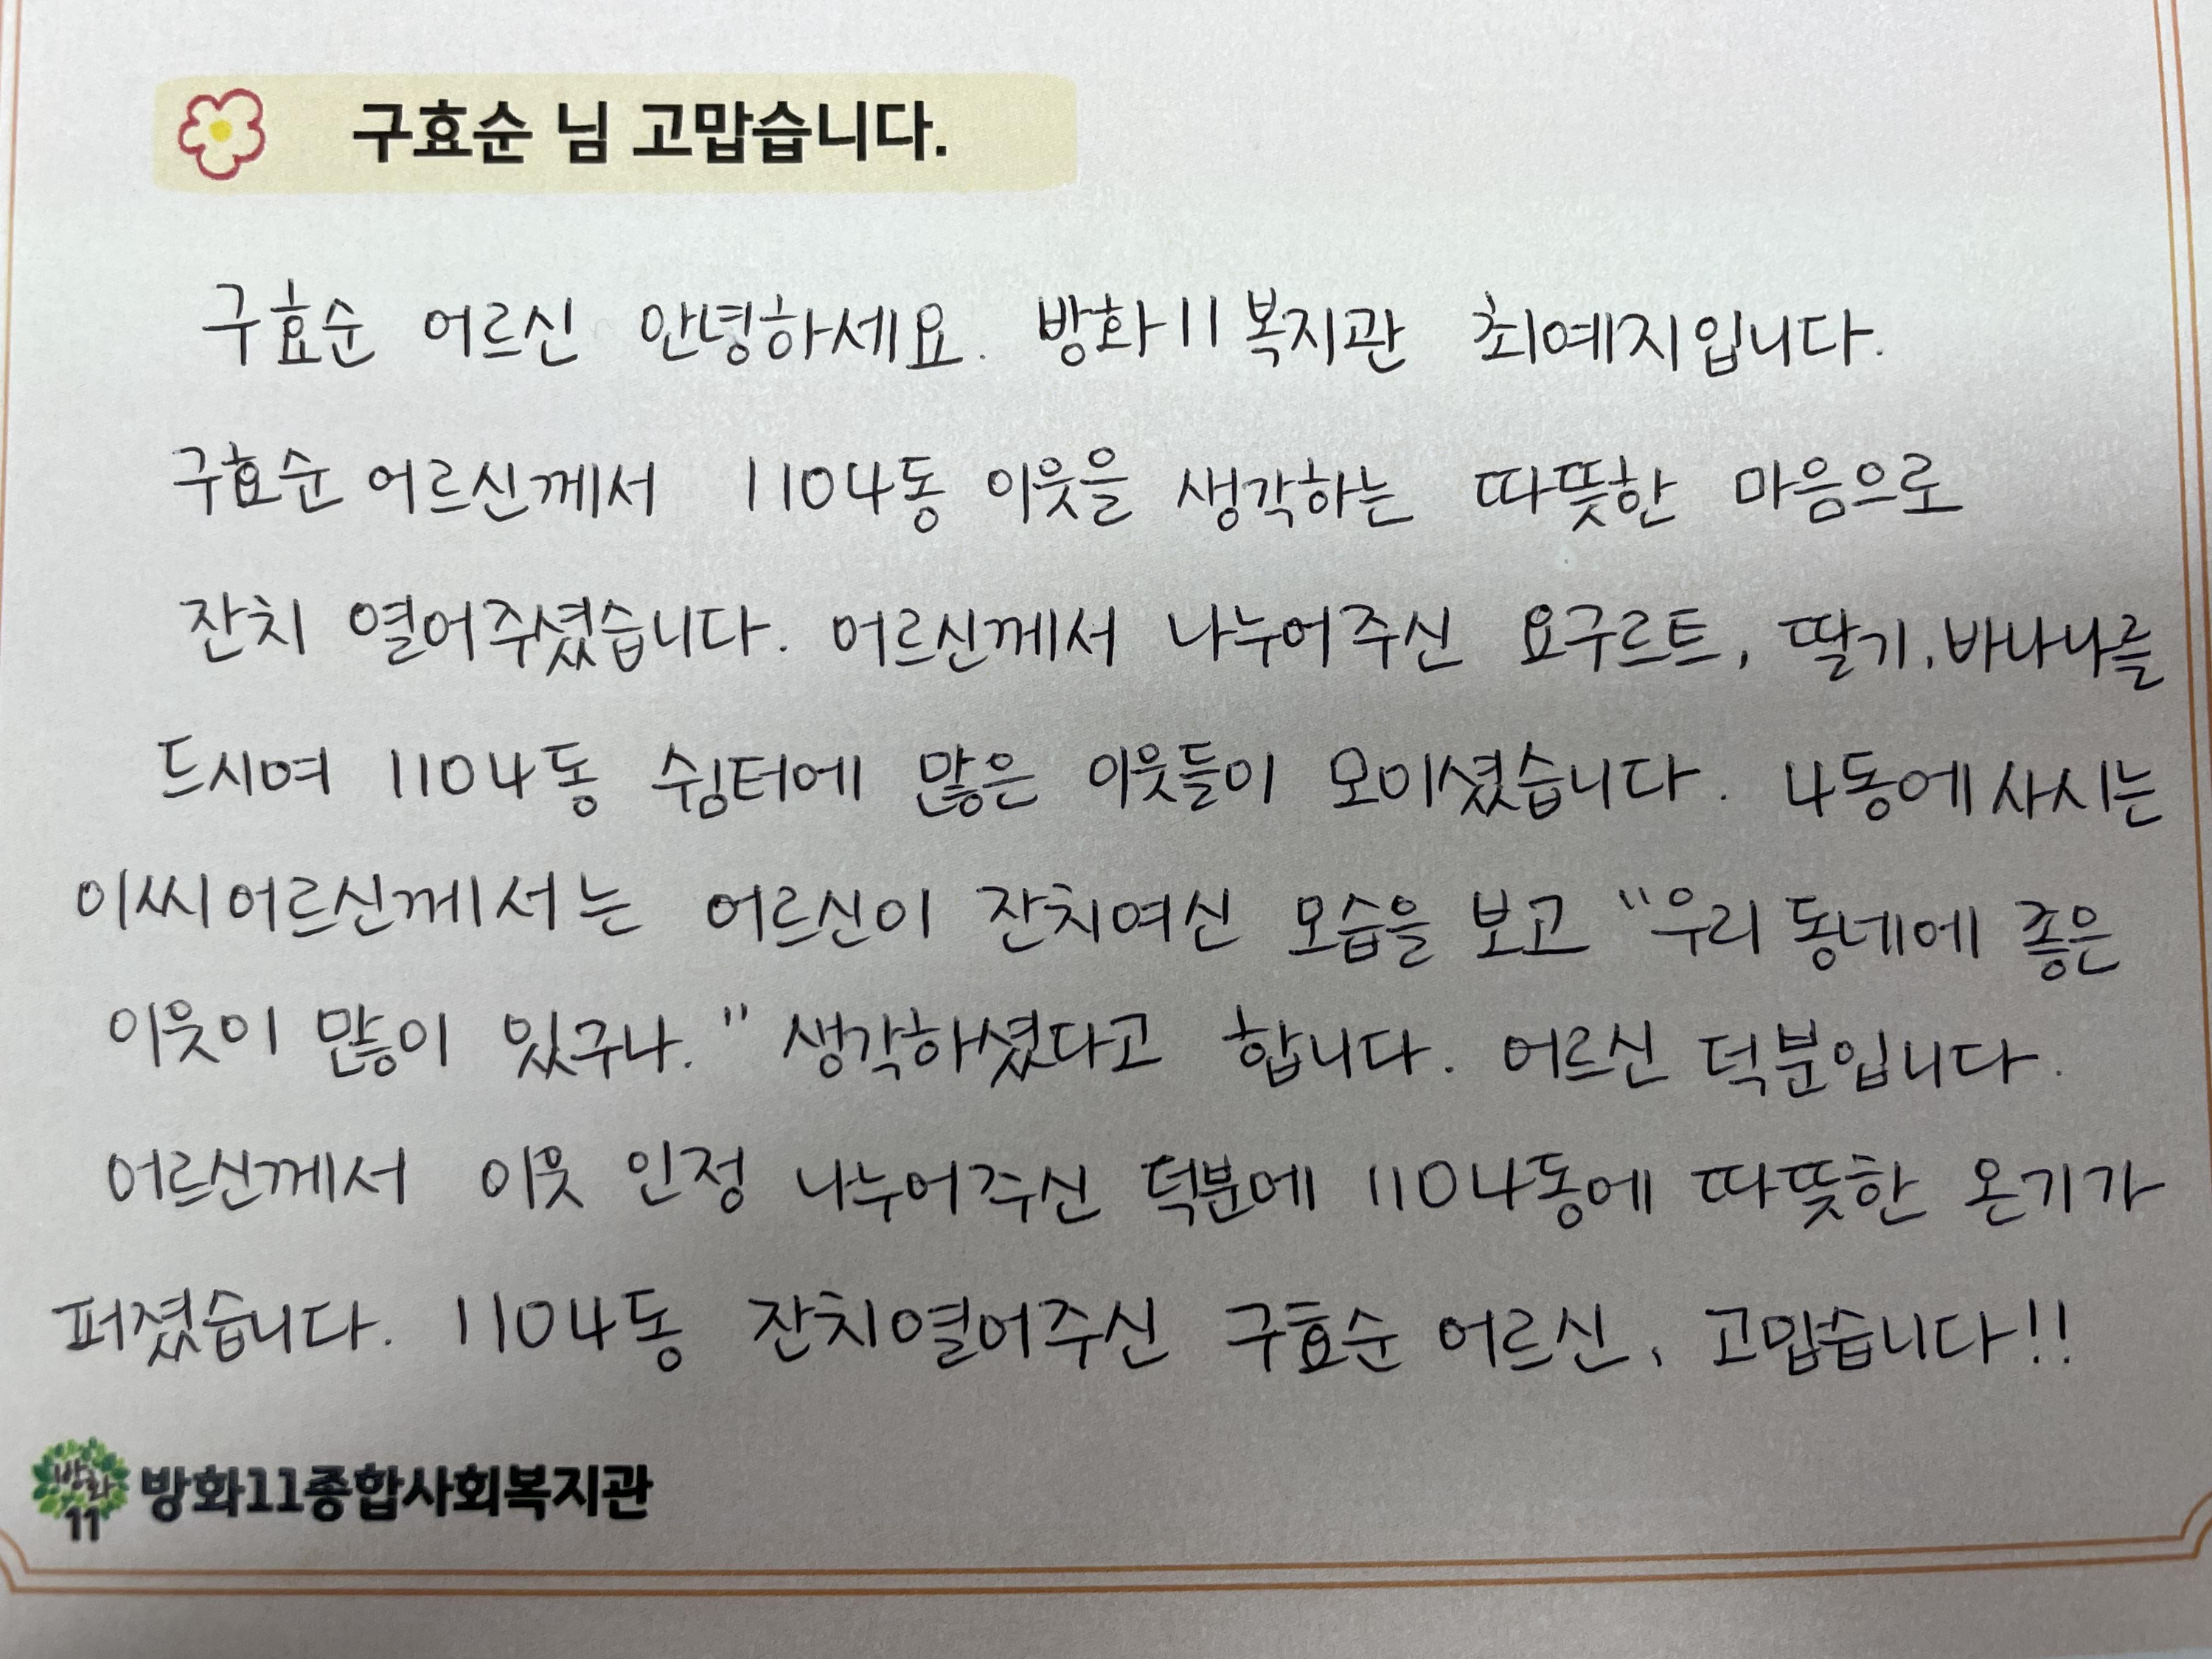 구효순 님 고맙습니다.
구효순 어르신 안녕하세요. 방화11복지관 최예지입니다.
구효순 어르신께서 1104동 이웃을 생각하는 따뜻한 마음으로
잔치 열어주셨습니다. 어르신께서 나누어주신 요구르트, 딸기, 바나나를
드시며 1104동 쉼터에 많은 이웃들이 모이셨습니다. 4동에 사시는
이씨어르신께서는 어르신이 잔치여신 모습을 보고 "우리 동네에 좋은
이웃이 많이 있구나." 생각하셨다고 합니다. 어르신 덕분입니다.
어르신께서 이웃 인정 나누어주신 덕분에 1104동에 따뜻한 온기가
퍼졌습니다. 1104동 잔치열어주신 구효순 어르신, 고맙습니다!!
방화
11
방화11종합사회복지관